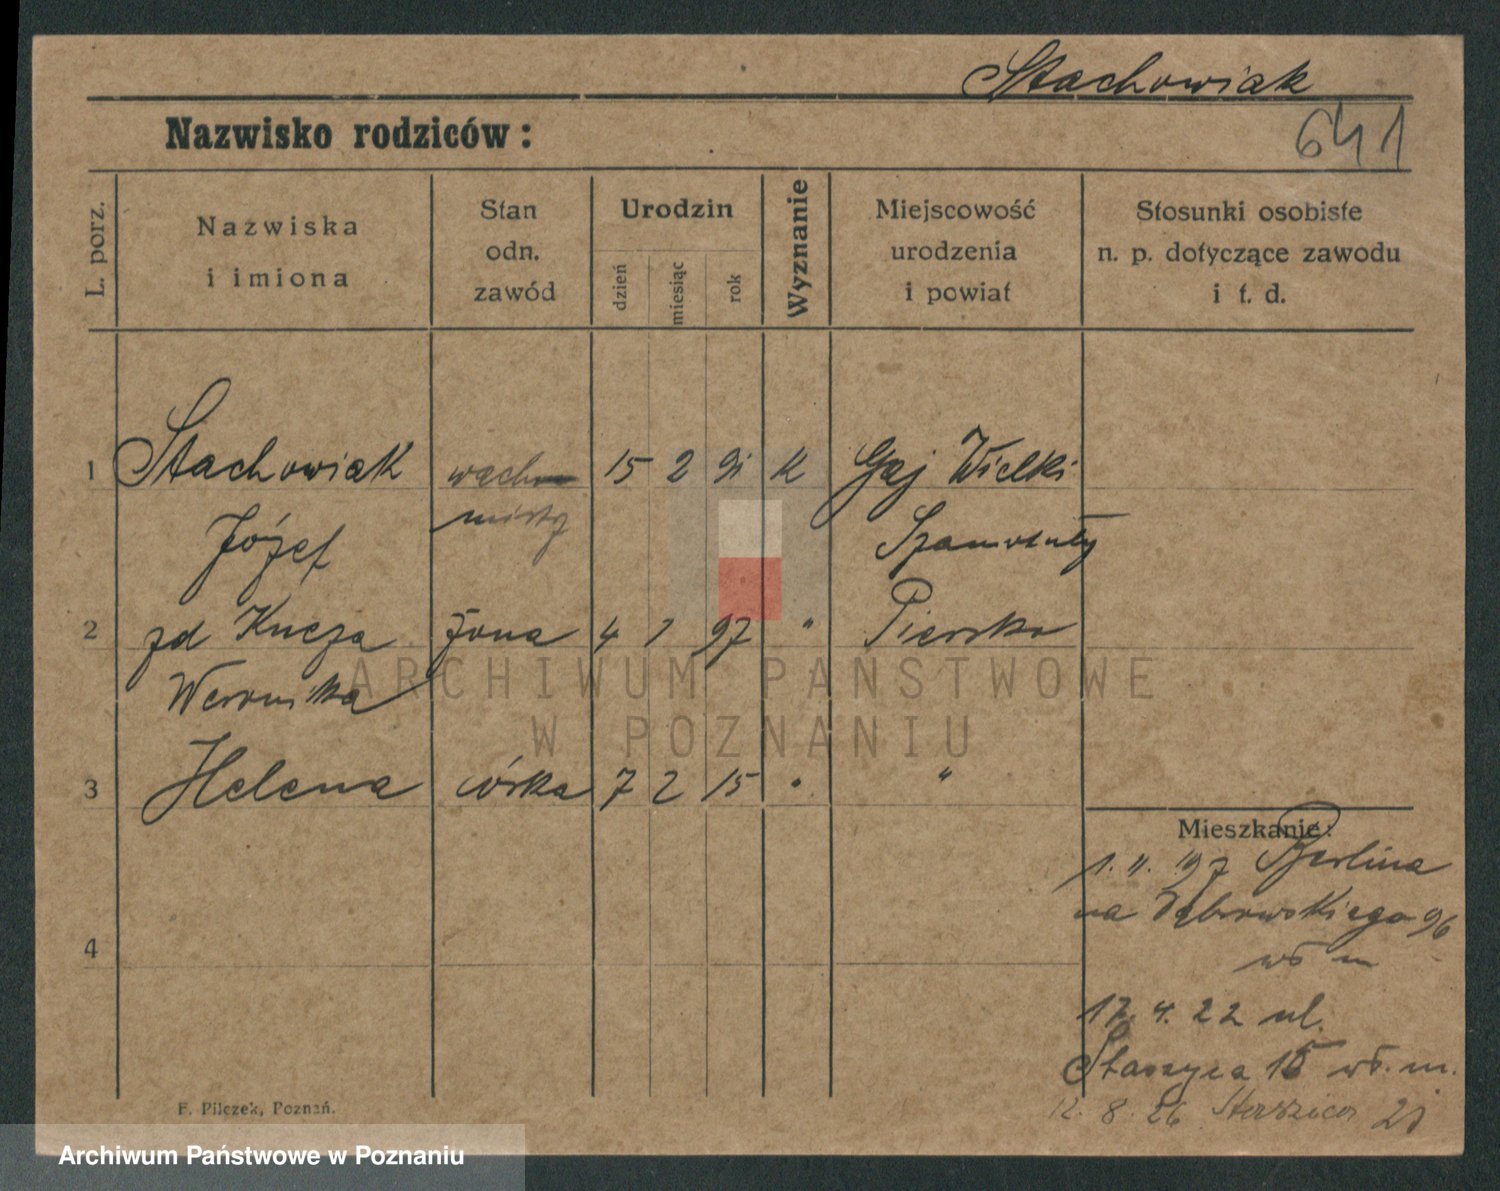 Stachowiak
Nazwisko rodziców:
641
L. porz.
Nazwiska
i imiona
Stan
odn.
zawód
Urodzin
dzień
miesiąc
rok
Wyznanie
Miejscowość
urodzenia
i powiat
Stosunki osobiste
n. p. dotyczące zawodu
i t. d.
1 Stachowiak wach 15 2 91 k Gaj Wielki
Józef Szamotuły
2 zd żona 4 1 97 " Piersko
Weronika
3 Helena córka 7 2 15 " "
4
Mieszkanie:
1. 4. Berlina
na Dąbrowskiego 96
wł m
17. 4. 22 ul.
Staszyca 15 wł. m.
12. 8. 26 21
F. Pilczek, Poznań.
ARCHIWUM PAŃSTWOWE
W POZNANIU
Archiwum Państwowe w Poznaniu